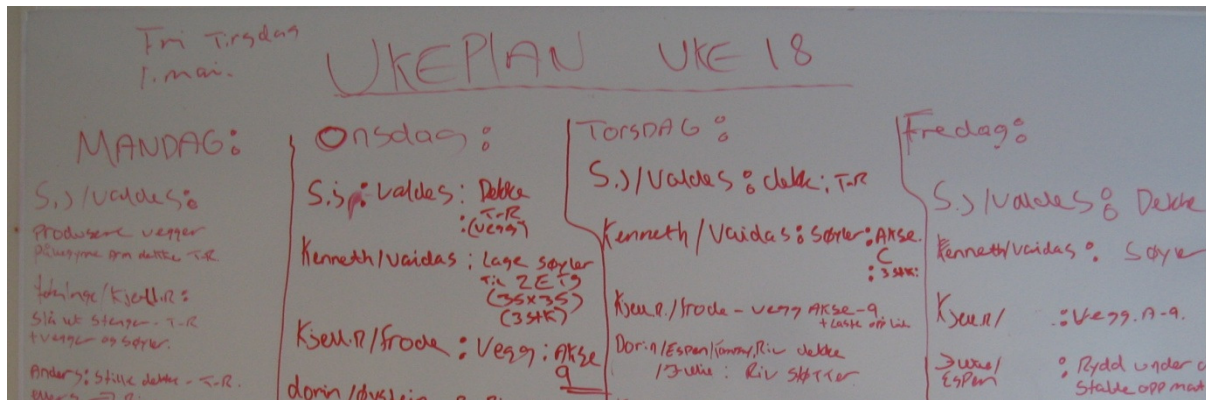 Fri Tirsdag
1. mai.
UKEPLAN UKE 18
MANDAG:
S.J/Valdes:
Produsere vegger
dekke T-R.
/Kjell.R:
Slå ut stenger - T-R
+vegger og søyler.
Anders: Stille dekke - T-R.
Onsdag:
S.j : Valdes : Dekke
: T-R
(vegg)
Kenneth/Vaidas : Lage søyler
(35x35)
(3 stk)
Kjell.R/Frode : Vegg : Akse
9
dorin/øystein
TORSDAG:
S.J/Valdes : dekke : T-R
Kenneth/Vaidas : Søyler : Akse.
C
: 3 stk:
Kjell.R./Frode - vegg Akse-9.
Dorin/Espen/Tommy, Riv dekke
: Riv støtter
Fredag:
S.J/Valdes : Dekke
Kenneth/Vaidas : Søyle
Kjell.R/ : Vegg. A-9.
Espen : Rydd under
Stable opp mat